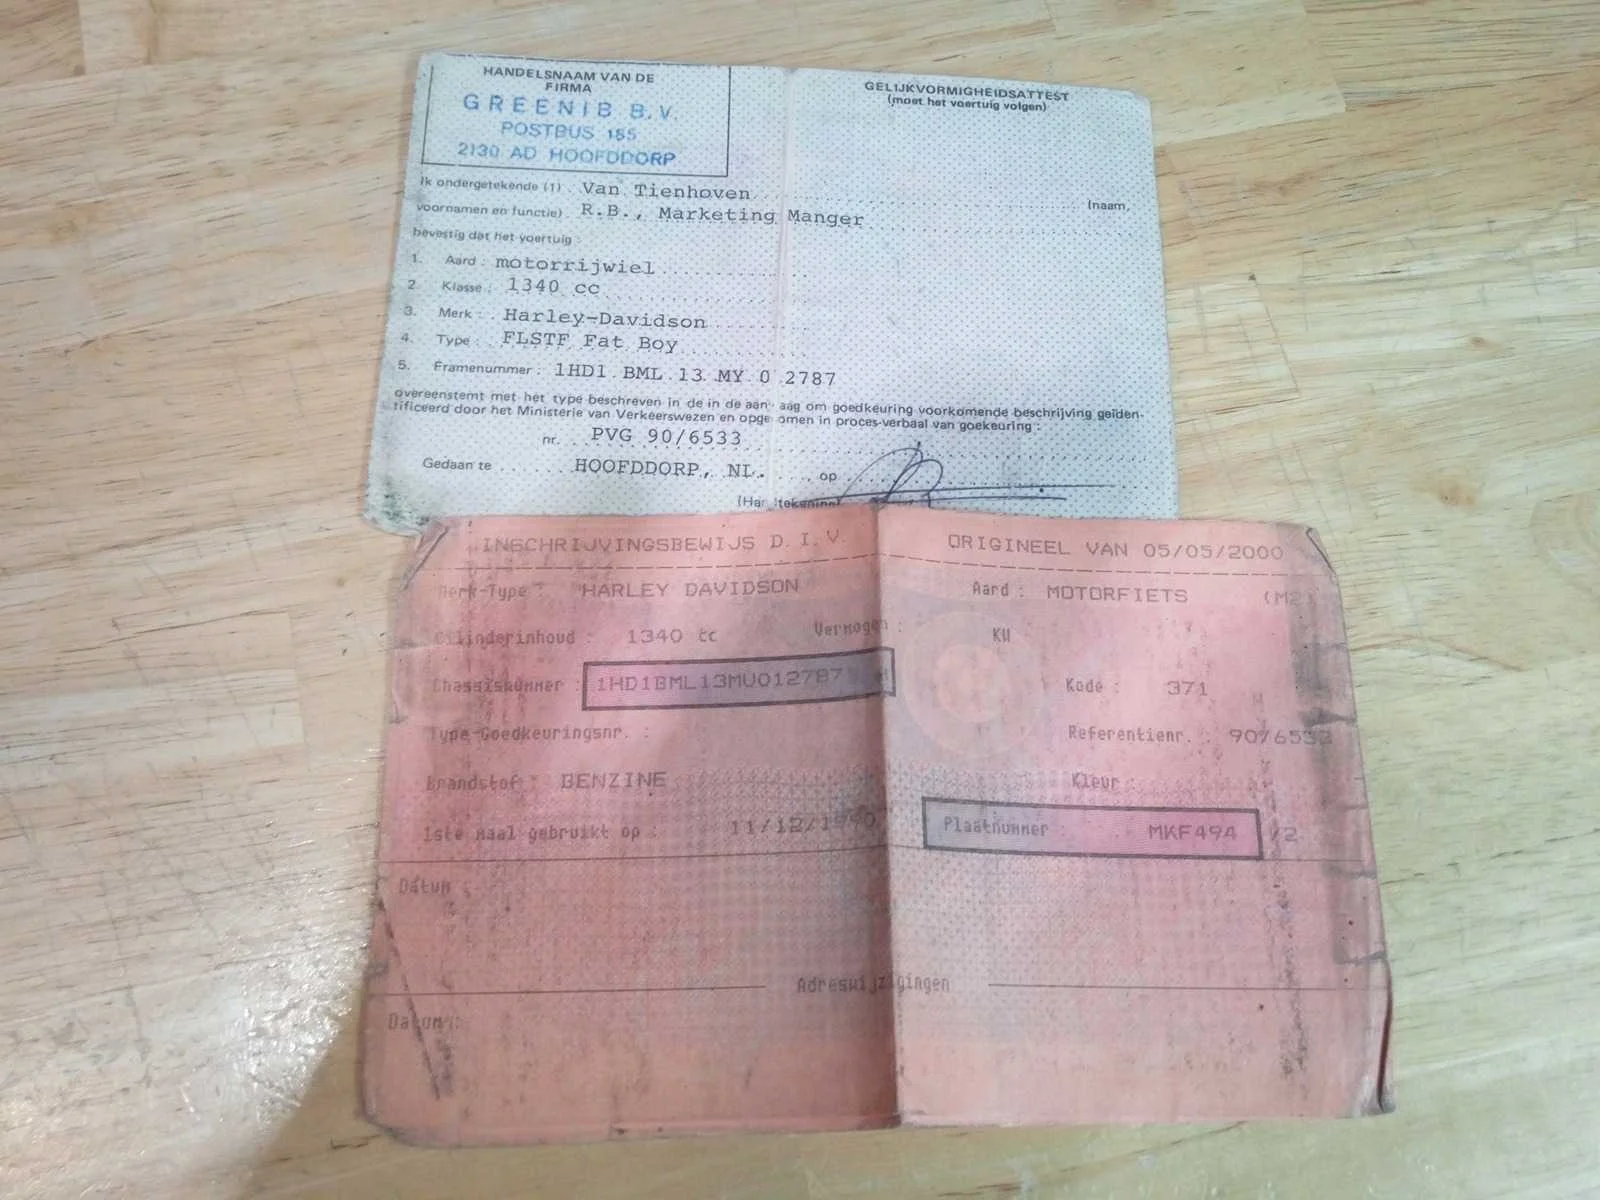 HANDELSNAAM VAN DE
FIRMA
GREENIB B.V.
POSTBUS 185
2130 AD HOOFDDORP
GELIJKVORMIGHEIDSATTEST
(moet het voertuig volgen)
Ik ondergetekende (1) . Van Tienhoven (naam,
voornamen en functie) R.B., Marketing Manger
bevestig dat het voertuig :
1. Aard : motorrijwiel
2. Klasse : 1340 cc
3. Merk : Harley-Davidson
4. Type : FLSTF Fat Boy
5. Framenummer : 1HD1 BML 13 MY 0 2787
overeenstemt met het type beschreven in de in de aanvraag om goedkeuring voorkomende beschrijving geïden-
tificeerd door het Ministerie van Verkeerswezen en opgenomen in proces-verbaal van goekeuring :
nr. PVG 90/6533
Gedaan te HOOFDDORP, NL. , op
(Handtekening)
INSCHRIJVINGSBEWIJS D.I.V. ORIGINEEL VAN 05/05/2000
Merk-Type : HARLEY DAVIDSON Aard : MOTORFIETS (M2
Cilinderinhoud : 1340 cc Vermogen : KW
Chassisnummer : 1HD1BML13MU012787 Kode : 371
Type-Goedkeuringsnr. : Referentienr. : 90/6533
Brandstof : BENZINE Kleur :
1ste maal gebruikt op : 11/12/1990 Plaatnummer : MKF494 /2
Datum :
Adreswijzigingen
Datum :